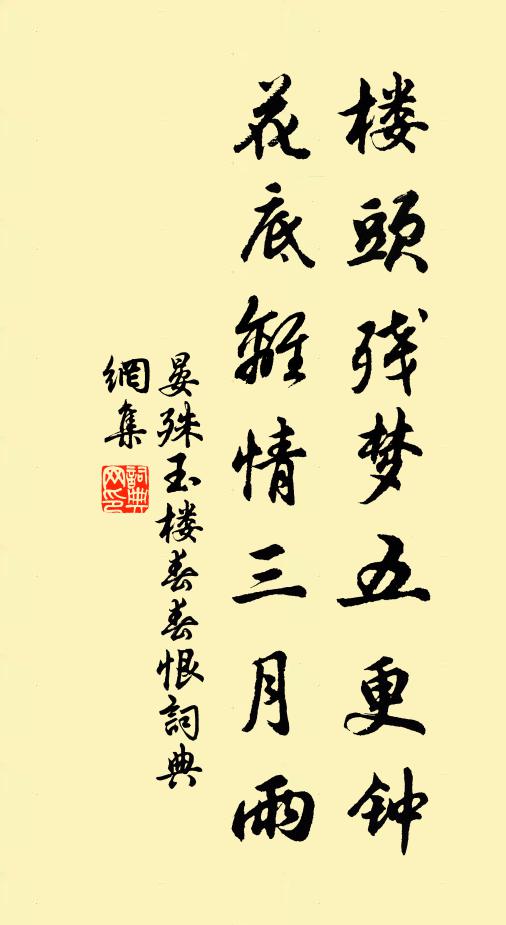 楼頭残梦五更钟
花底離情三月雨
晏殊玉楼春春恨詞典
網集
詞典
网印